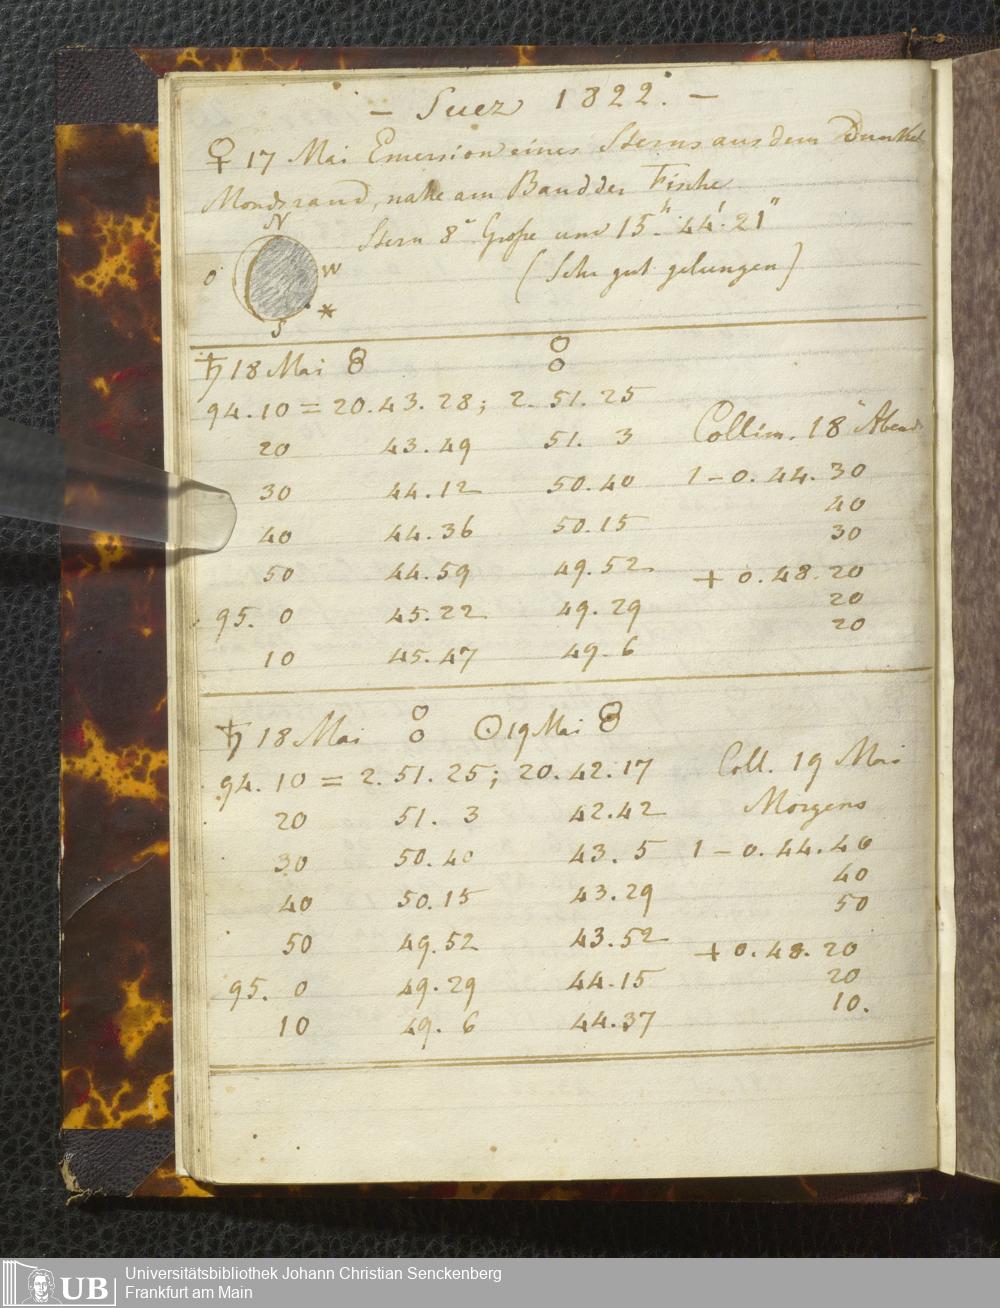 – Suez 1822. –
♀ 17 Mai Emersion eines Sterns aus dem Dunkel
Mondsrand, nahe am Band der Fische
Stern 8ͬ Große um 15ʰ. 44'. 21"
(Sehr gut gelungen)
N
O W
S *
♄ 18 Mai
94. 10 = 20. 43. 28; 2. 51. 25
20 43. 49 51. 3 Collim. 18ͭ Abends
30 44. 12 50. 40 1 – 0. 44. 30
40 44. 36 50. 15 40
30
50 44. 59 49. 52 + 0. 48. 20
95. 0 45. 22 49. 29 20
20
10 45. 47 49. 6
♄ 18 Mai ☉ 19 Mai
94. 10 = 2. 51. 25; 20. 42. 17 Coll. 19 Mai
20 51. 3 42. 42 Morgens
30 50. 40 43. 5 1 – 0. 44. 40
40 50. 15 43. 29 40
50
50 49. 52 43. 52 + 0. 48. 20
95. 0 49. 29 44. 15 20
10 49. 6 44. 37 10.
UB
Universitätsbibliothek Johann Christian Senckenberg
Frankfurt am Main